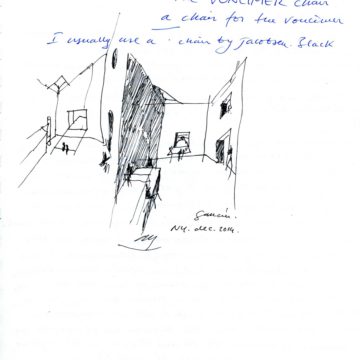 VONLIMER chair
a chair for the vonlimer
I usually use a chair by Jacobsen. Black
NY. dec. 2014.